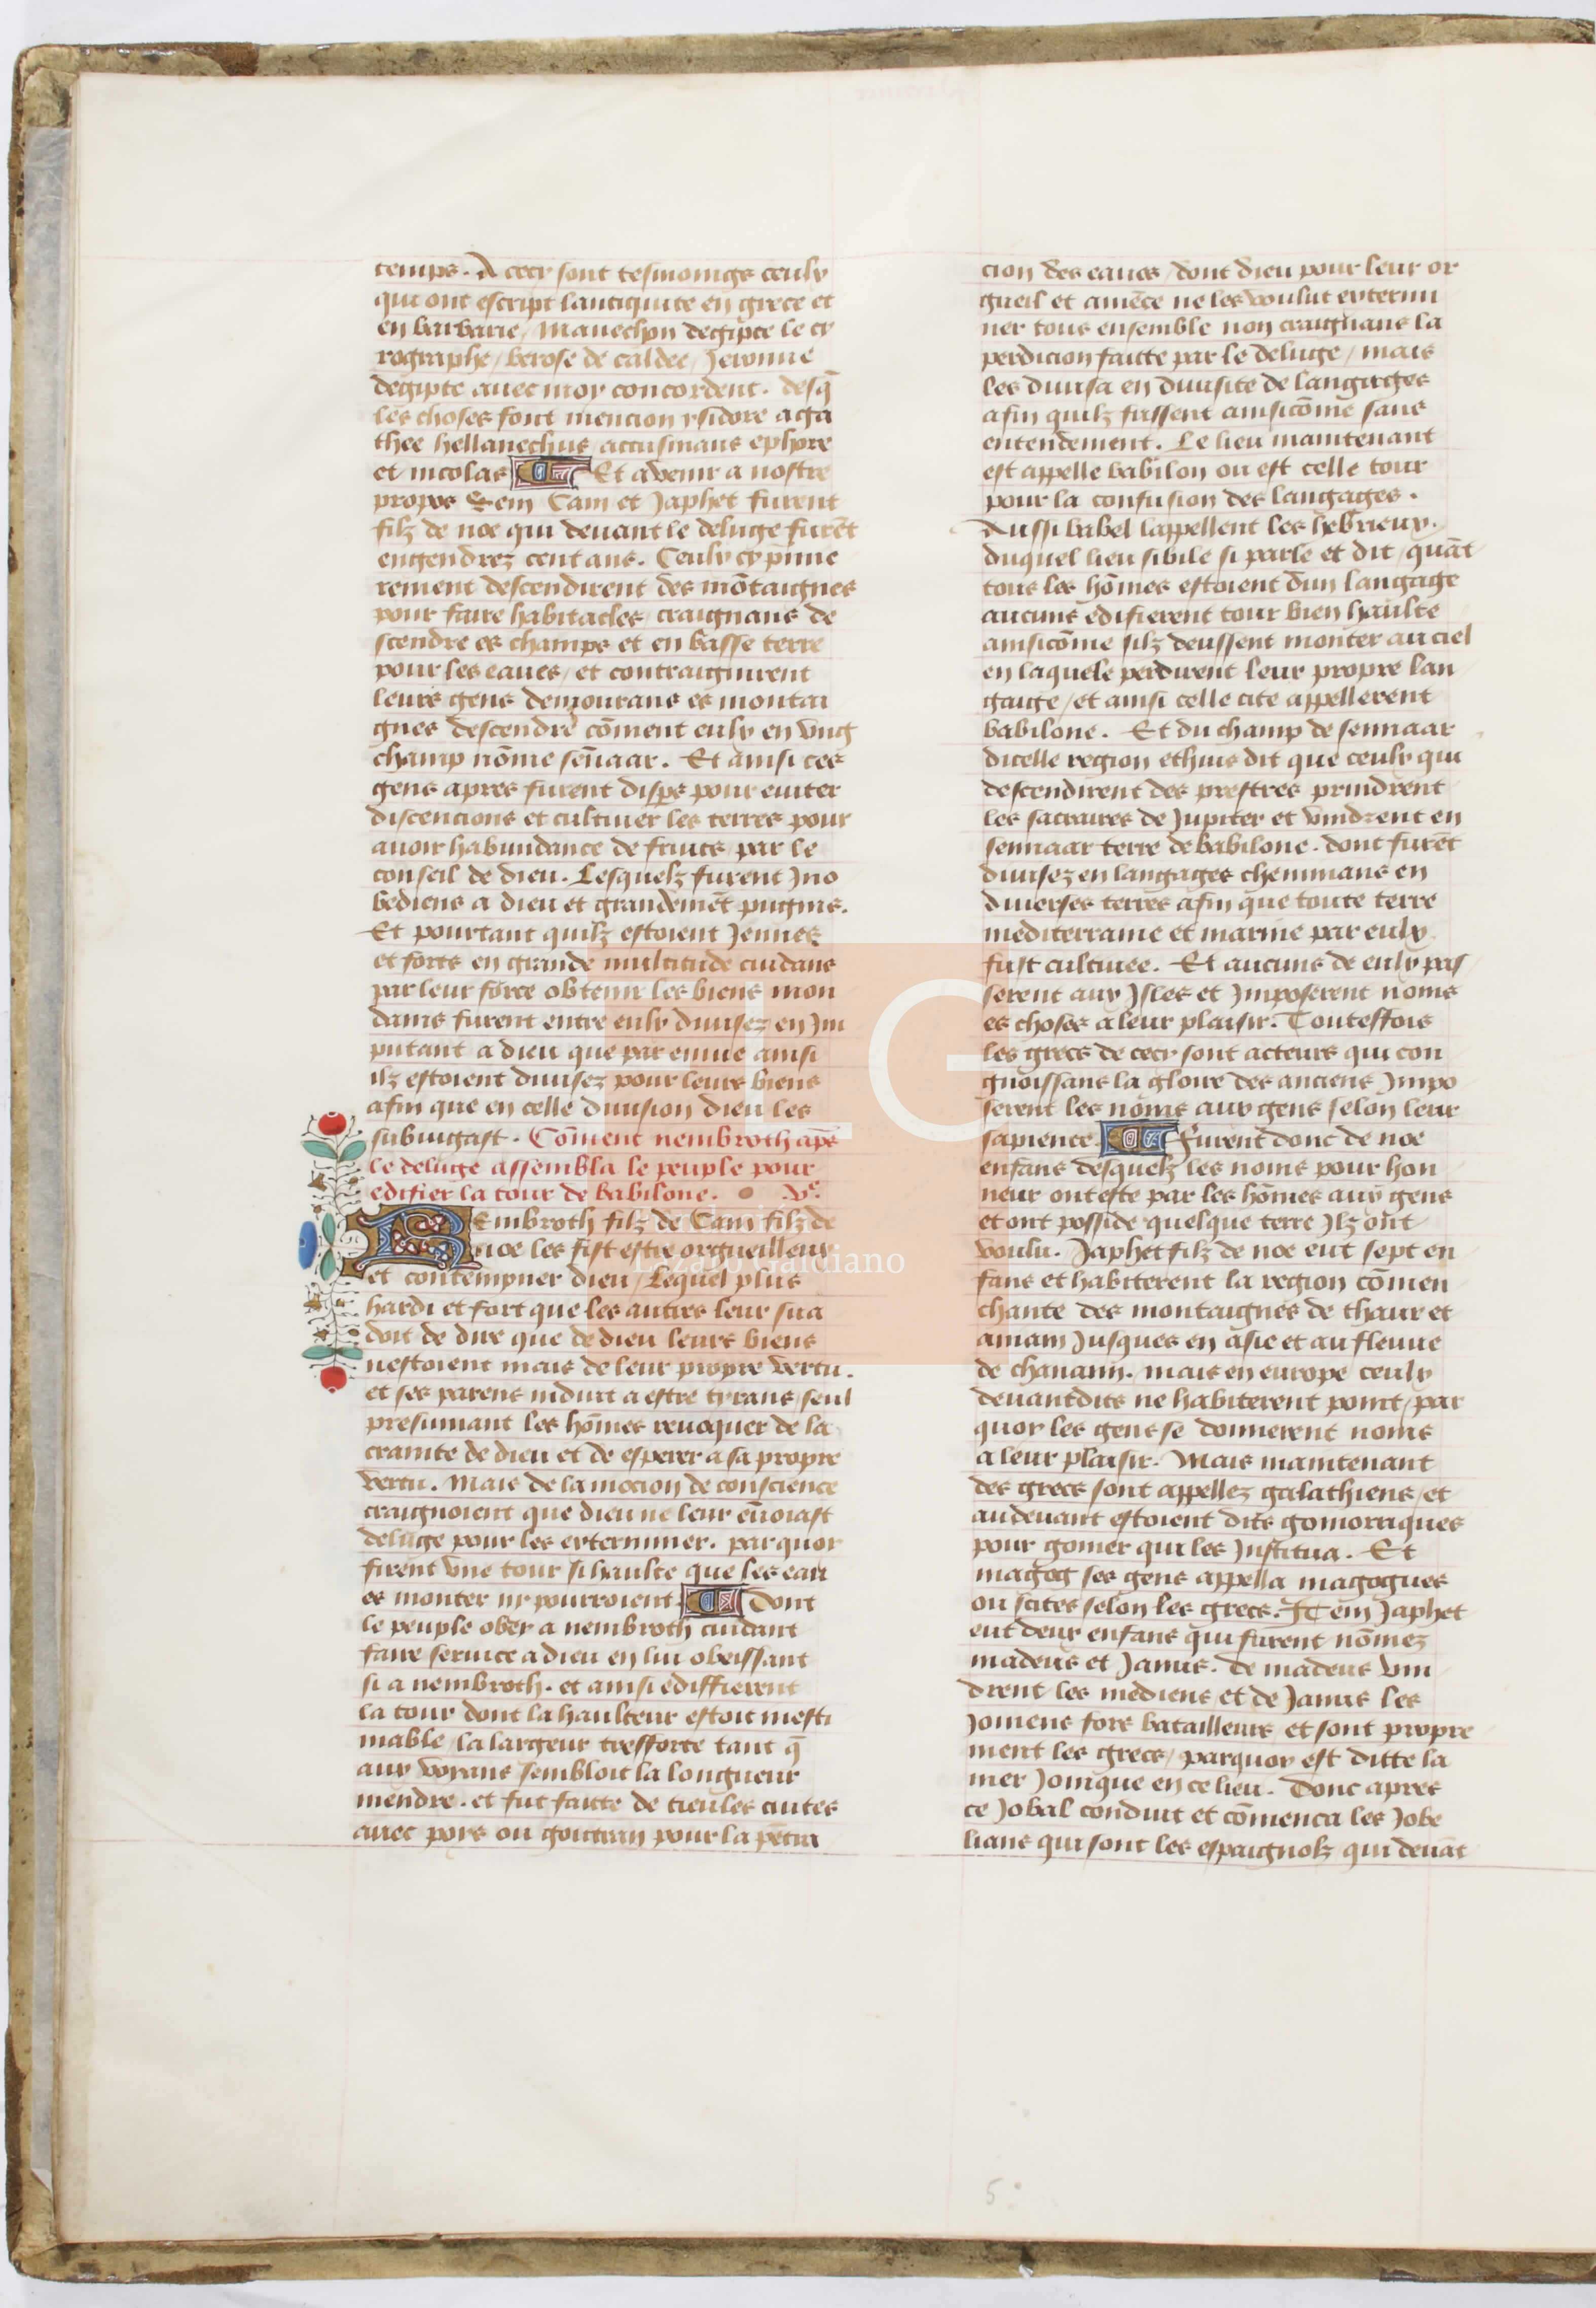 temps. A cecy sont tesmoings ceulx
qui ont escript lantiquite en grece et
en barbarie / manechon degipte le cy
rographe / berose de caldee / Jeronne
degipte avec moy concordent. desq̄
les choses font mencion ysidore aga
thee hellanechus accusinaus ephore
et nicolas Et a venir a nostre
propos Sem Cam et Japhet furent
filz de noe qui devant le deluge furēt
engendrez cent ans. Ceulx cy p̄mie
rement descendirent des mōtaignes
pour faire habitacles craignans de
scendre es champs et en basse terre
pour les eaues / et contraignirent
leurs gens demourans es montai
gnes descendre cōment eulx en vng
champ nōme sēnaar. Et ainsi ces
gens apres furent disps pour eviter
discencions et cultiver les terres pour
avoir habundance de fruits par le
conseil de dieu. Lesquelz furent Jno
bediens a dieu et grandemēt pugnis.
Et pourtant quilz estoient Jennes
et fors en grande multitude cuidans
par leur force obtenir les biens mon
dains furent entre eulx divisez en Jm
putant a dieu que par envie ainsi
ilz estoient divisez pour leurs biens
afin que en celle division dieu les
subiugast. Cōment nembroth ap̄s
le deluge assembla le peuple pour
edifier la tour de babilone. .ve.
Nembroth filz de Cam filz de
noe les fist estre orgueilleux
et contempner dieu / Lequel plus
hardi et fort que les autres leur sua
doit de dire que de dieu leurs biens
nestoient mais de leur propre vertu.
et ses parens induit a estre tyrans / seul
presumant les hōmes revoquer de la
crainte de dieu et de esperer a sa propre
vertu. Mais de la mocion de conscience
craignoient que dieu ne leur ēnoiast
deluge pour les exterminer. par quoy
firent vne tour si haulte que les eau
es monter ny pourroient Dont
le peuple obey a nembroth cuidant
faire service a dieu en lui obeissant
si a nembroth. et ainsi ediffierent
la tour dont la haulteur estoit inesti
mable / la largeur tresforte tant q̄
aux voyans sembloit la longueur
mendre. et fut faitte de tieules cuites
avec pois ou goitran pour la petra
cion des eaues / dont dieu pour leur or
gueil et amēce ne les voulut extermi
ner tous ensemble non craignans la
perdicion faitte par le deluge / mais
les divisa en divsite de langages
afin quilz fussent ainsicōme sans
entendement. Le lieu maintenant
est appelle babilon ou est celle tour
pour la confusion des langages.
Aussi babel lappellent les hebrieux.
duquel lieu sibile si parle et dit / quāt
tous les hōmes estoient dun langage
aucuns edifierent tour bien haulte
ainsicōme silz deussent monter au ciel
en laquele perdirent leur propre lan
gaige / et ainsi celle cite appellerent
babilone. Et du champ de sennaar
dicelle region ethius dit que ceulx qui
descendirent des prestres prindrent
les sacraires de Jupiter et vindrent en
sennaar terre de babilone. dont furēt
divisez en langages cheminans en
diverses terres afin que toute terre
mediterraine et marine par eulx
fust cultivee. Et aucuns de eulx pas
serent aux Jsles et Jmposerent noms
es choses a leur plaisir. Touteffois
les grecs de cecy sont acteurs qui con
gnoissans la gloire des anciens Jmpo
serent les noms aux gens selon leur
sapience. Furent donc de noe
enfans desquelz les noms pour hon
neur ont este par les hōmes aux gens
et ont posside quelque terre Jlz ont
voulu. Japhet filz de noe eut sept en
fans et habiterent la region cōmen
chante des montaignes de thaur et
amam Jusques en asie et au fleuve
de chanann. mais en europe ceulx
devantdits ne habiterent point / par
quoy les gens se donnerent noms
a leur plaisir. Mais maintenant
des grecs sont appellez galathiens / et
au devant estoient dits gomoraques
pour gomer qui les Jnstitua. Et
magog ses gens appella magogues
ou scites selon les grecs. Jtem Japhet
eut deux enfans qui furent nōmez
madeus et Janus. de madeus vin
drent les mediens et de Janus les
Joniens fors batailleurs et sont propre
ment les grecs / parquoy est ditte la
mer Jonique en ce lieu. Donc apres
ce Jobal conduit et cōmenca les Jobe
liens qui sont les espaignolz qui devāt
5.
FLG
Lázaro Galdiano